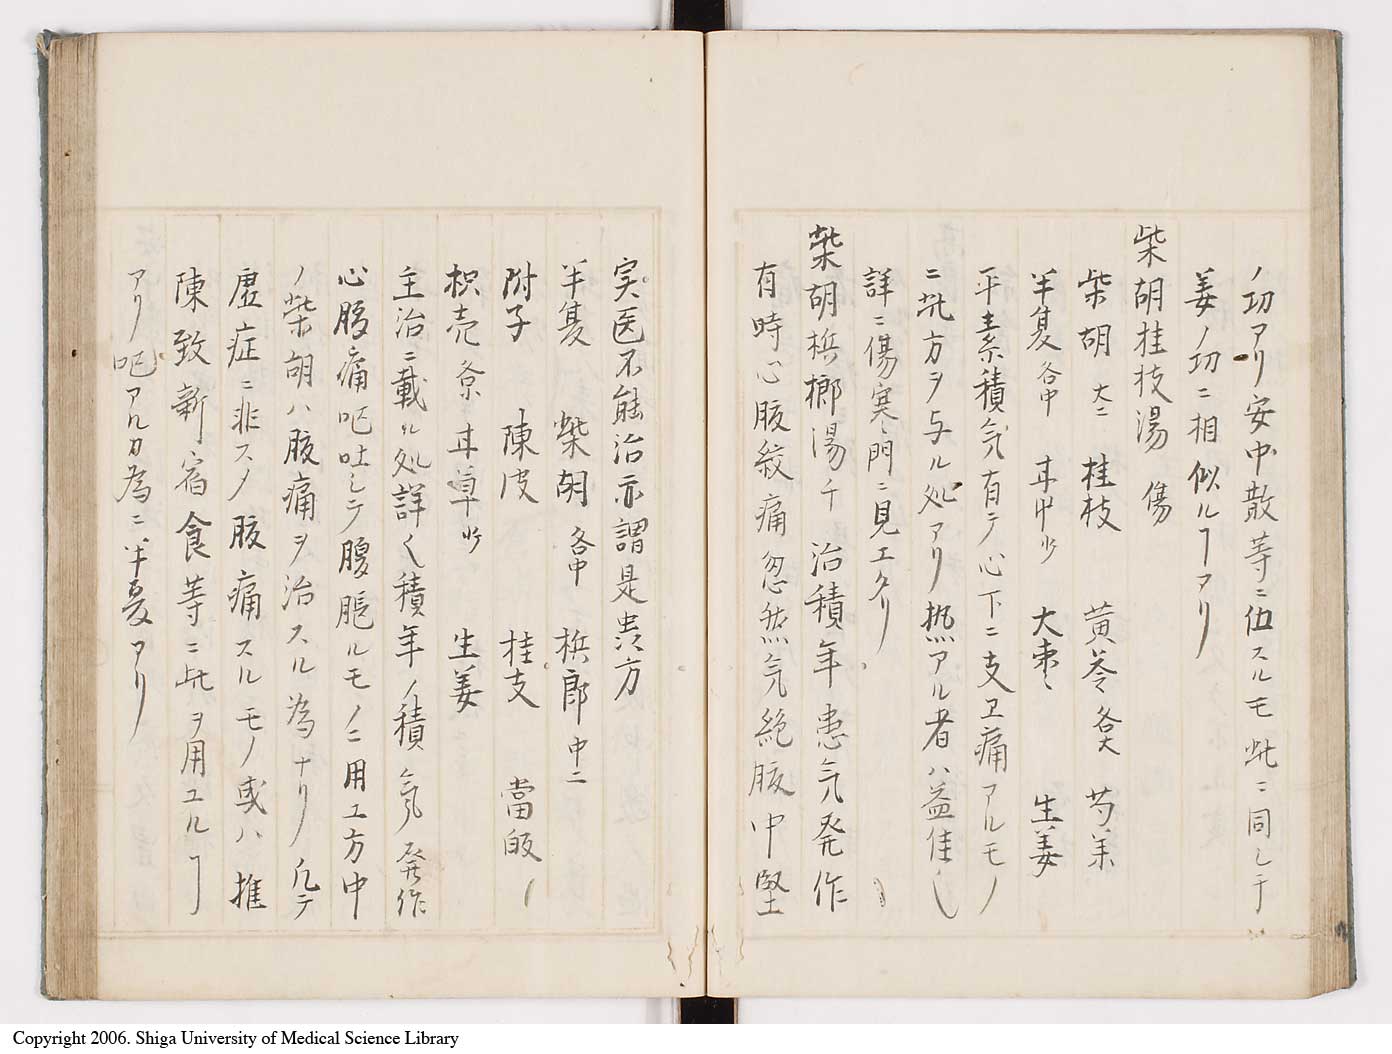 ノ功アリ安中散等ニ伍スルモ此ニ同シテ
姜ノ功ニ相似ルヿアリ
柴胡桂枝湯 傷
柴胡 大ニ 桂枝 黄芩 各大 芍薬
半夏 各中 甘艸 少 大棗 生姜
平素積気有テ心下ニ支ヱ痛アルモノ
ニ此方ヲ与ル処アリ熱アル者ハ益佳シ
詳ニ傷寒門ニ見エタリ
柴胡梹榔湯 千 治積年患気発作
有時心腹絞痛忽然気絶腹中堅
実医不能治亦謂是虫方
半夏 柴胡 各中 梹郎 中二
附子 陳皮 桂支 當皈
枳壳 各 甘草 少 生姜
主治ニ載ル処詳く積年ノ積気発作
心腹痛呕吐シテ腹脹ルモノニ用エ方中
ノ柴胡ハ腹痛ヲ治スル為ナリ凡テ
虚症ニ非スノ腹痛スルモノ或ハ推
陳致新宿食等ニ此ヲ用ユルヿ
アリ呕アルカ為ニ半夏アリ
Copyright 2006. Shiga University of Medical Science Library